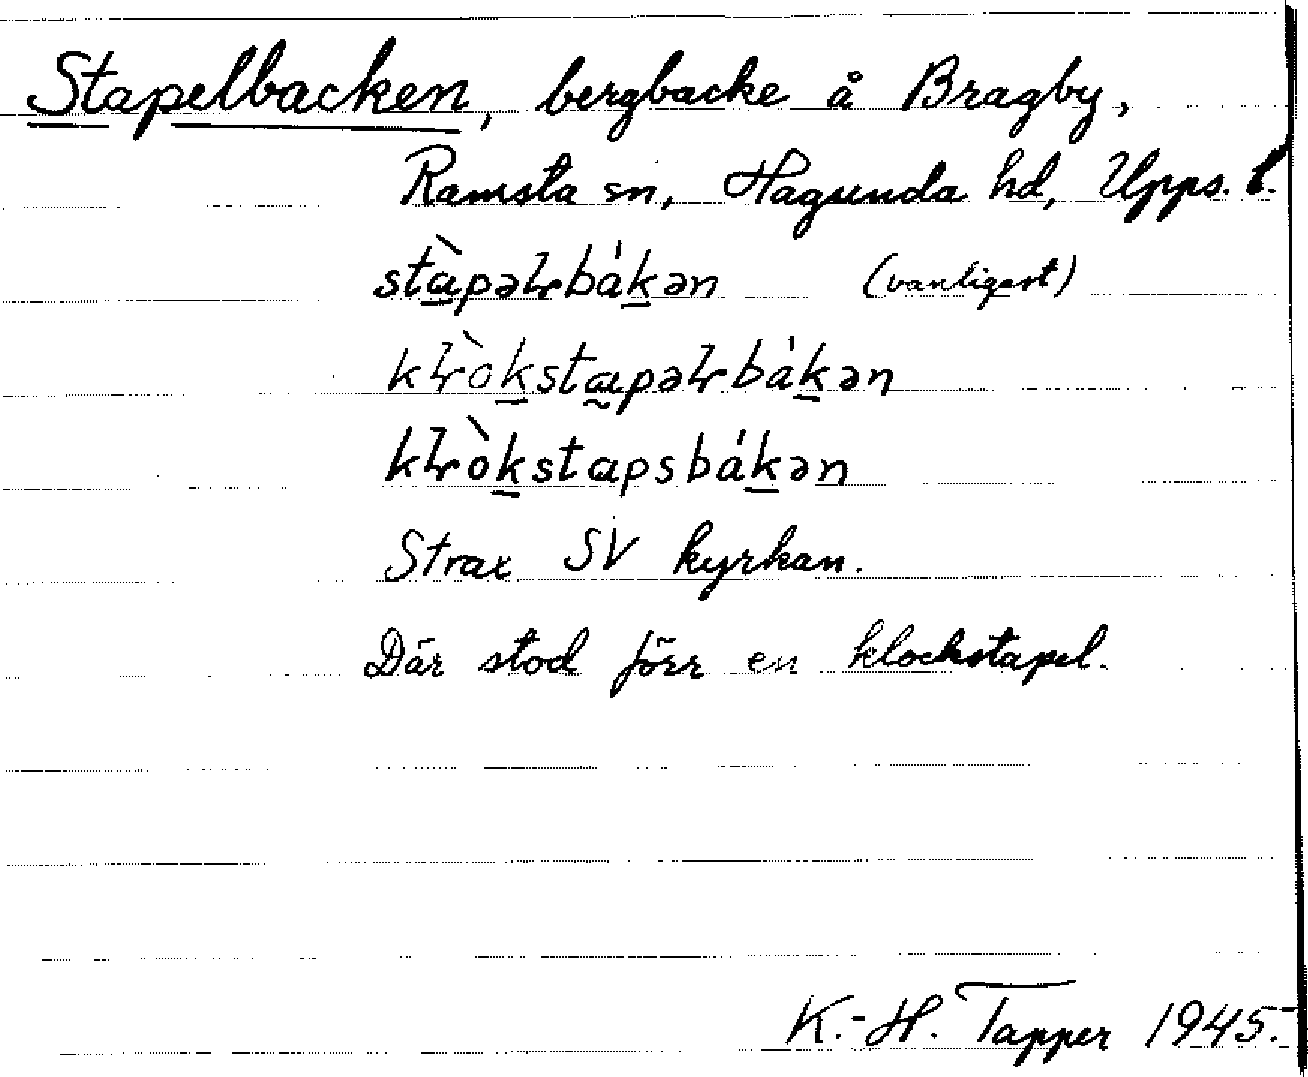 Stapelbacken, bergbacke å Bragby,
Ramsta sn, Hagunda hd, Upps. l.
stàpəɽbákən (vanligast)
kɽòkstapəɽbákən
kɽòkstapsbákən
Strax SV kyrkan.
Där stod förr en klockstapel.
K.-H. Tapper 1945.